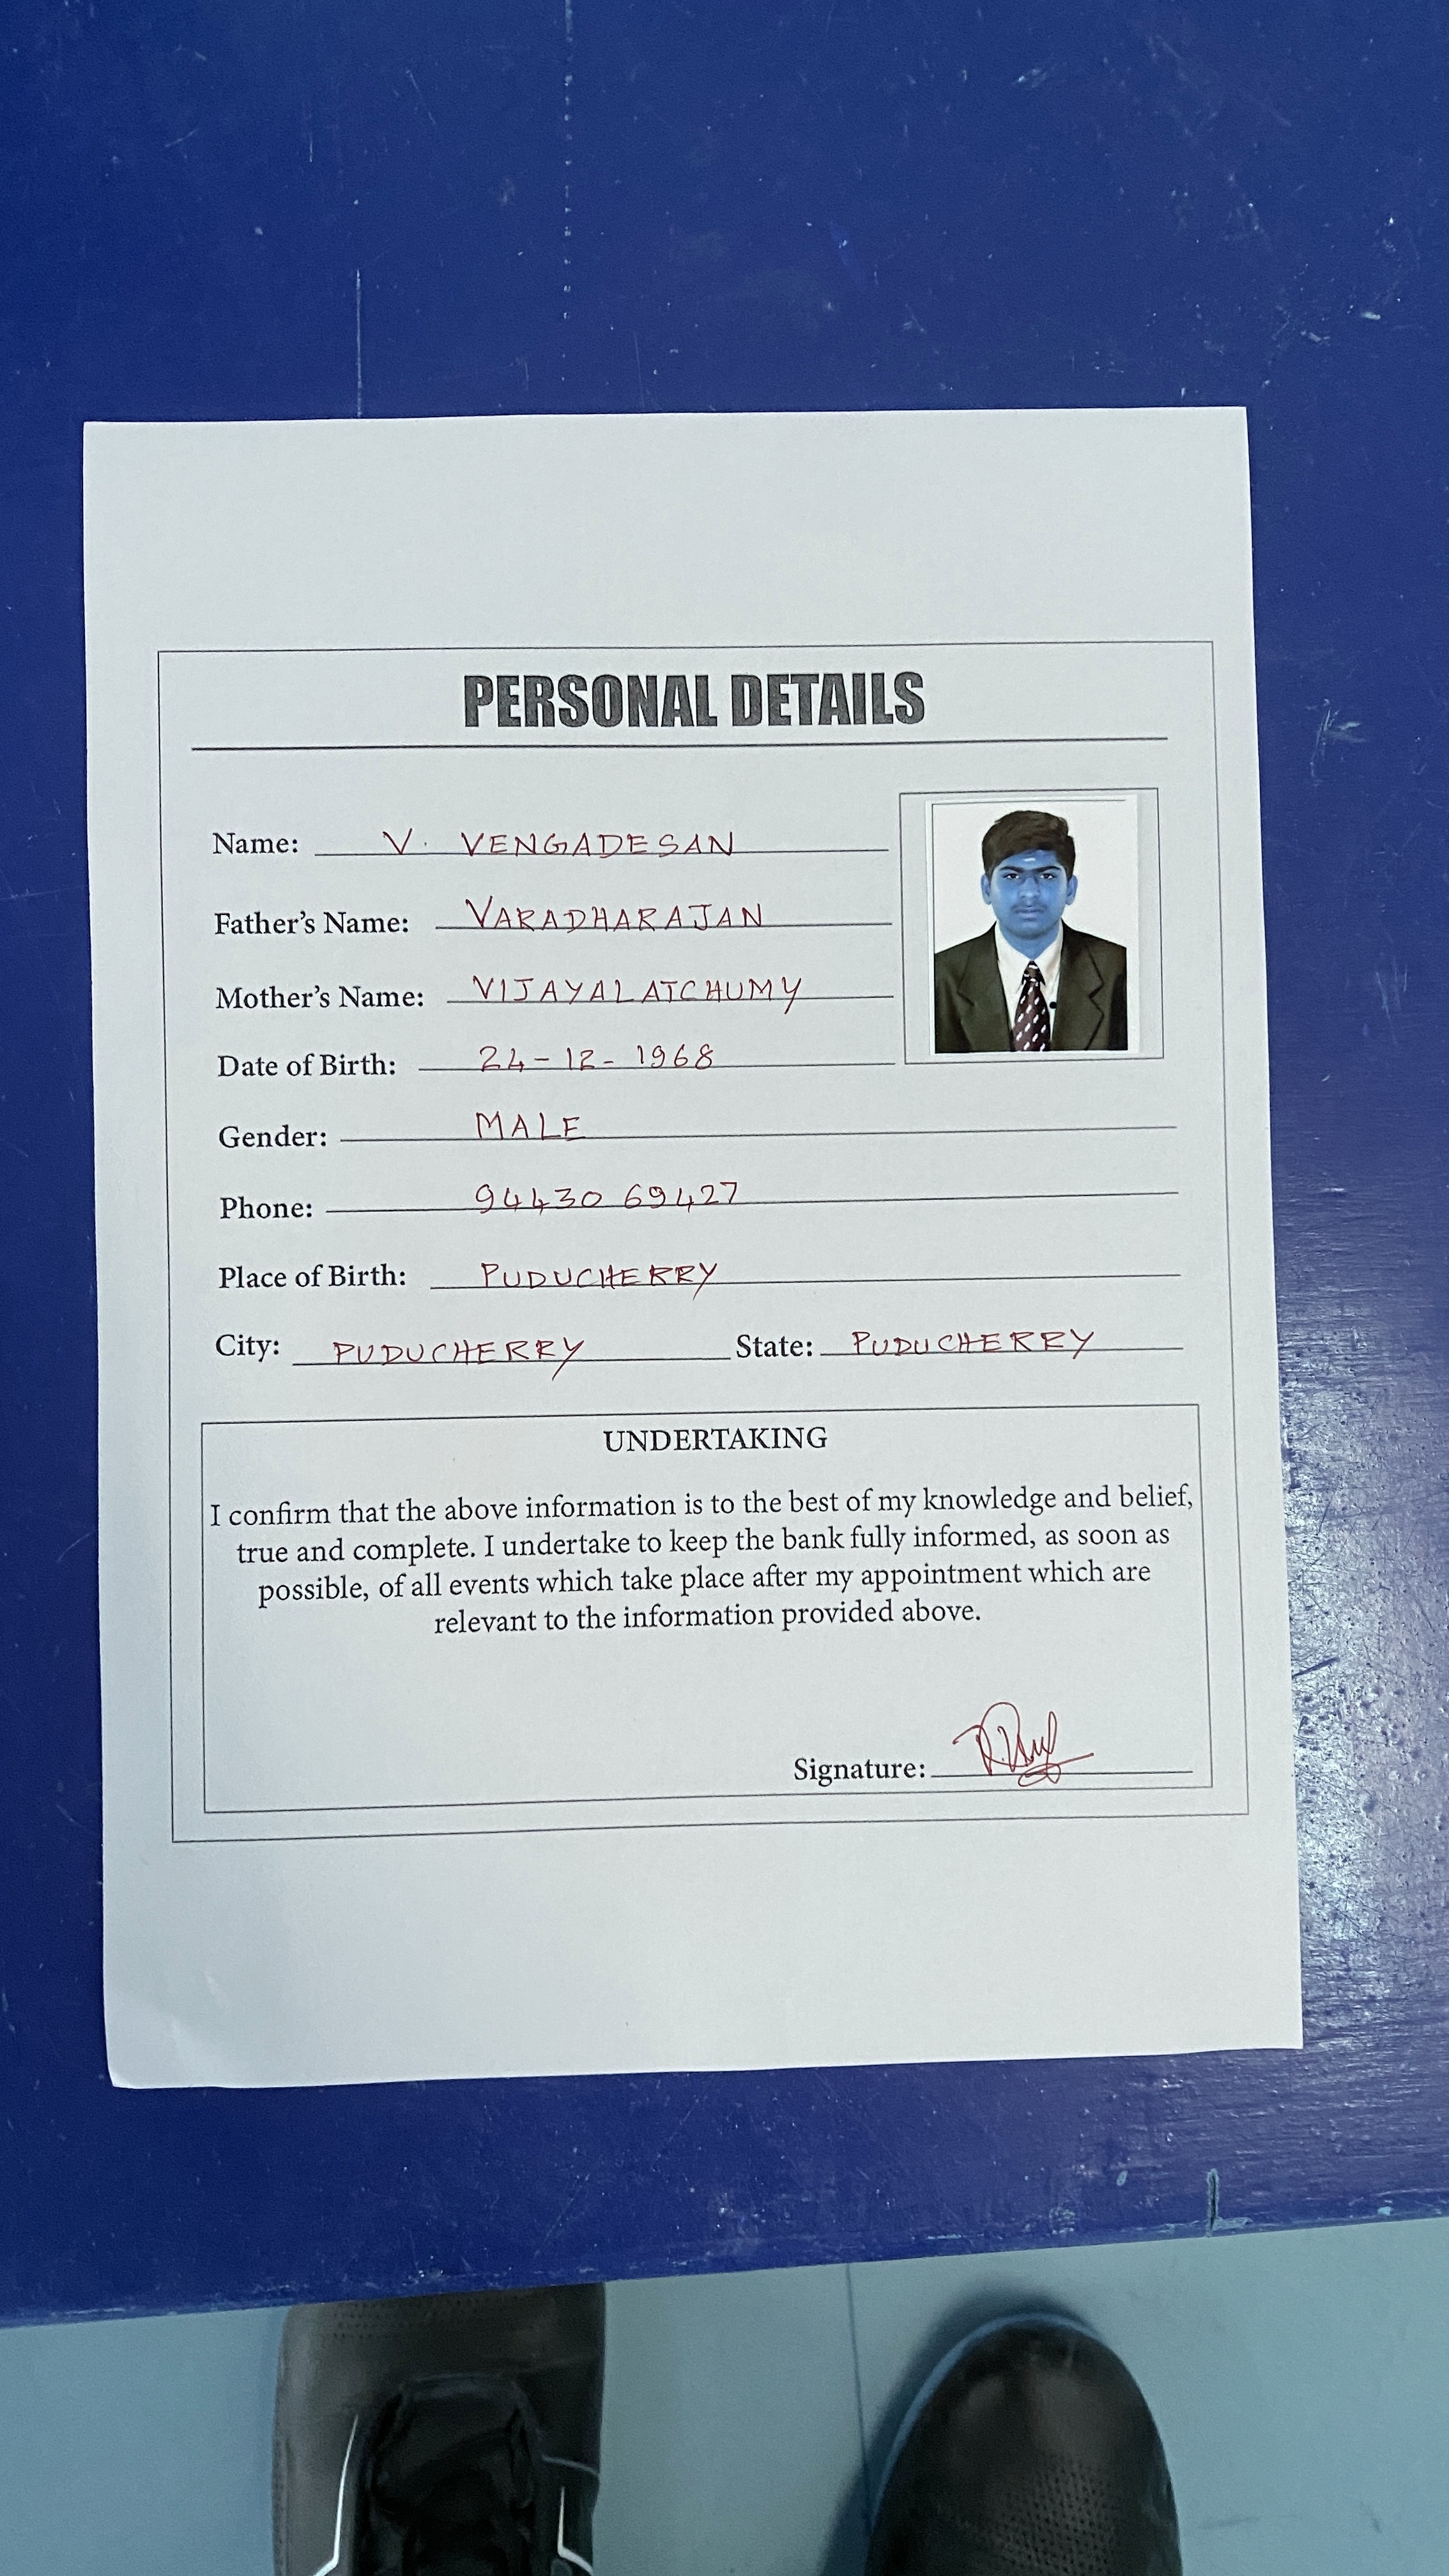 PERSONAL DETAILS
Name: V. VENGADESAN
Father's Name: VARADHARAJAN
Mother's Name: VIJAYALATCHUMY
Date of Birth: 24-12-1968
Gender: MALE
Phone: 94430 69427
Place of Birth: PUDUCHERRY
City: PUDUCHERRY State: PUDUCHERRY
UNDERTAKING
I confirm that the above information is to the best of my knowledge and belief,
true and complete. I undertake to keep the bank fully informed, as soon as
possible, of all events which take place after my appointment which are
relevant to the information provided above.
Signature: